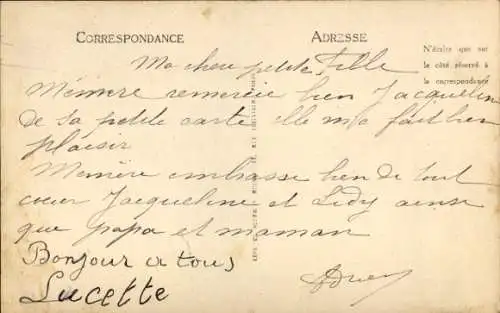 CORRESPONDANCE
ADRESSE
N'écrire que sur
le côté réservé à
la correspondance
Ma cher petite fille
Mémère remercie bien Jacqueline
de sa petite carte elle m'a fait bien
plaisir
Memère embrasse bien de tout
cœur Jacqueline et Lidy ainsi
que papa et maman
Bonjour a tous
Lucette